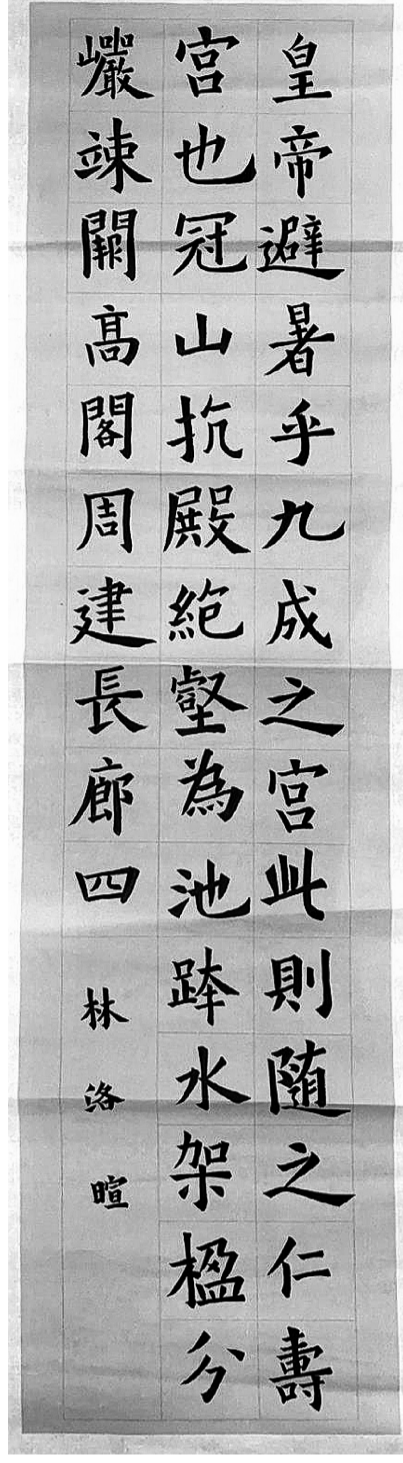 皇帝避暑乎九成之宫此則随之仁壽
宫也冠山抗殿絶壑為池跨水架楹分
巖竦闕高閣周建長廊四
林洛暄